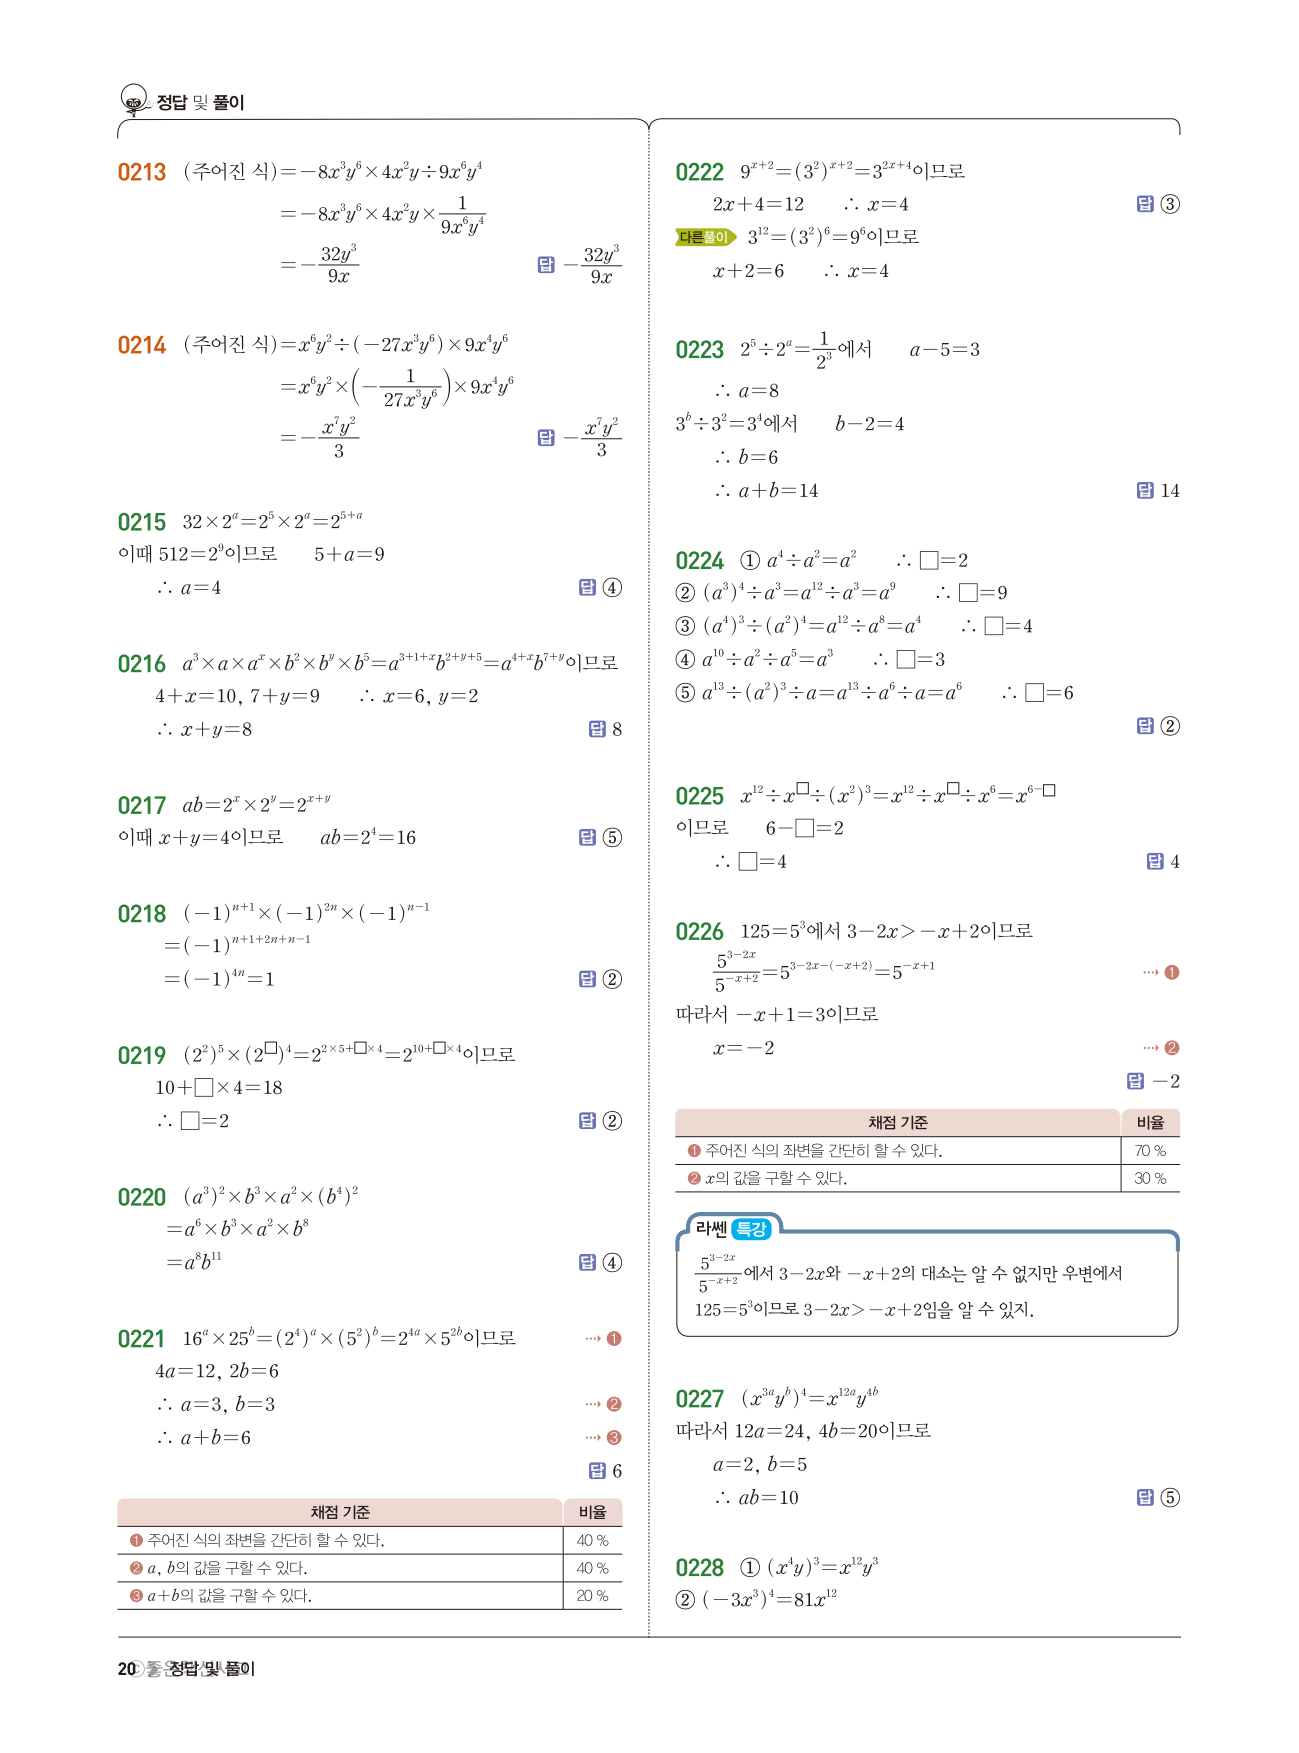 정답 및 풀이
0213 (주어진 식)=-8x³y⁶×4x²y÷9x⁶y⁴
=-8x³y⁶×4x²y×\frac{1}{9x⁶y⁴}
=-\frac{32y³}{9x} 답 -\frac{32y³}{9x}
0214 (주어진 식)=x⁶y²÷(-27x³y⁶)×9x⁴y⁶
=x⁶y²×(-\frac{1}{27x³y⁶})×9x⁴y⁶
=-\frac{x⁷y²}{3} 답 -\frac{x⁷y²}{3}
0215 32×2^{a}=2⁵×2^{a}=2^{5+a}
이때 512=2⁹이므로 5+a=9
∴ a=4 답 ④
0216 a³×a×a^{x}×b²×b^{y}×b⁵=a^{3+1+x}b^{2+y+5}=a^{4+x}b^{7+y}이므로
4+x=10, 7+y=9 ∴ x=6, y=2
∴ x+y=8 답 8
0217 ab=2^{x}×2^{y}=2^{x+y}
이때 x+y=4이므로 ab=2⁴=16 답 ⑤
0218 (-1)^{n+1}×(-1)^{2n}×(-1)^{n-1}
=(-1)^{n+1+2n+n-1}
=(-1)^{4n}=1 답 ②
0219 (2²)⁵×(2^{□})⁴=2^{2×5+□×4}=2^{10+□×4}이므로
10+□×4=18
∴ □=2 답 ②
0220 (a³)²×b³×a²×(b⁴)²
=a⁶×b³×a²×b⁸
=a⁸b¹¹ 답 ④
0221 16^{a}×25^{b}=(2⁴)^{a}×(5²)^{b}=2^{4a}×5^{2b}이므로 ⋯→ ❶
4a=12, 2b=6
∴ a=3, b=3 ⋯→ ❷
∴ a+b=6 ⋯→ ❸
답 6
채점 기준 비율
❶ 주어진 식의 좌변을 간단히 할 수 있다. 40 %
❷ a, b의 값을 구할 수 있다. 40 %
❸ a+b의 값을 구할 수 있다. 20 %
0222 9^{x+2}=(3²)^{x+2}=3^{2x+4}이므로
2x+4=12 ∴ x=4 답 ③
다른풀이 3¹²=(3²)⁶=9⁶이므로
x+2=6 ∴ x=4
0223 2⁵÷2^{a}=\frac{1}{2³}에서 a-5=3
∴ a=8
3^{b}÷3²=3⁴에서 b-2=4
∴ b=6
∴ a+b=14 답 14
0224 ① a⁴÷a²=a² ∴ □=2
② (a³)⁴÷a³=a¹²÷a³=a⁹ ∴ □=9
③ (a⁴)³÷(a²)⁴=a¹²÷a⁸=a⁴ ∴ □=4
④ a¹⁰÷a²÷a⁵=a³ ∴ □=3
⑤ a¹³÷(a²)³÷a=a¹³÷a⁶÷a=a⁶ ∴ □=6
답 ②
0225 x¹²÷x^{□}÷(x²)³=x¹²÷x^{□}÷x⁶=x^{6-□}
이므로 6-□=2
∴ □=4 답 4
0226 125=5³에서 3-2x>-x+2이므로
\frac{5^{3-2x}}{5^{-x+2}}=5^{3-2x-(-x+2)}=5^{-x+1} ⋯→ ❶
따라서 -x+1=3이므로
x=-2 ⋯→ ❷
답 -2
채점 기준 비율
❶ 주어진 식의 좌변을 간단히 할 수 있다. 70 %
❷ x의 값을 구할 수 있다. 30 %
라쎈 특강
\frac{5^{3-2x}}{5^{-x+2}}에서 3-2x와 -x+2의 대소는 알 수 없지만 우변에서
125=5³이므로 3-2x>-x+2임을 알 수 있지.
0227 (x^{3a}y^{b})⁴=x^{12a}y^{4b}
따라서 12a=24, 4b=20이므로
a=2, b=5
∴ ab=10 답 ⑤
0228 ① (x⁴y)³=x¹²y³
② (-3x³)⁴=81x¹²
20 정답 및 풀이